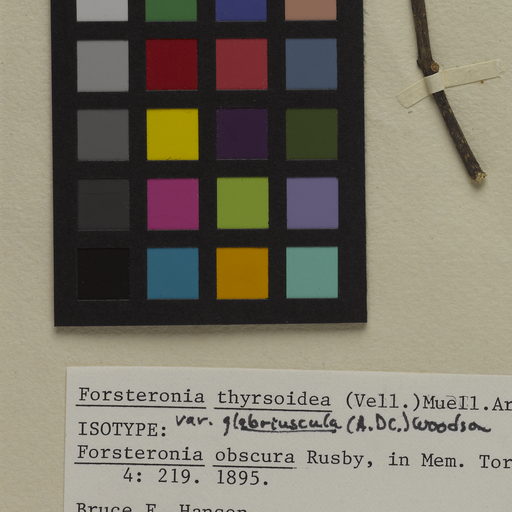 Forsteronia thyrsoidea (Vell.)Muell.Ar
var. glabriuscula (A.DC.) Woodson
ISOTYPE:
Forsteronia obscura Rusby, in Mem. Tor
4: 219. 1895.
Bruce F. Hansen